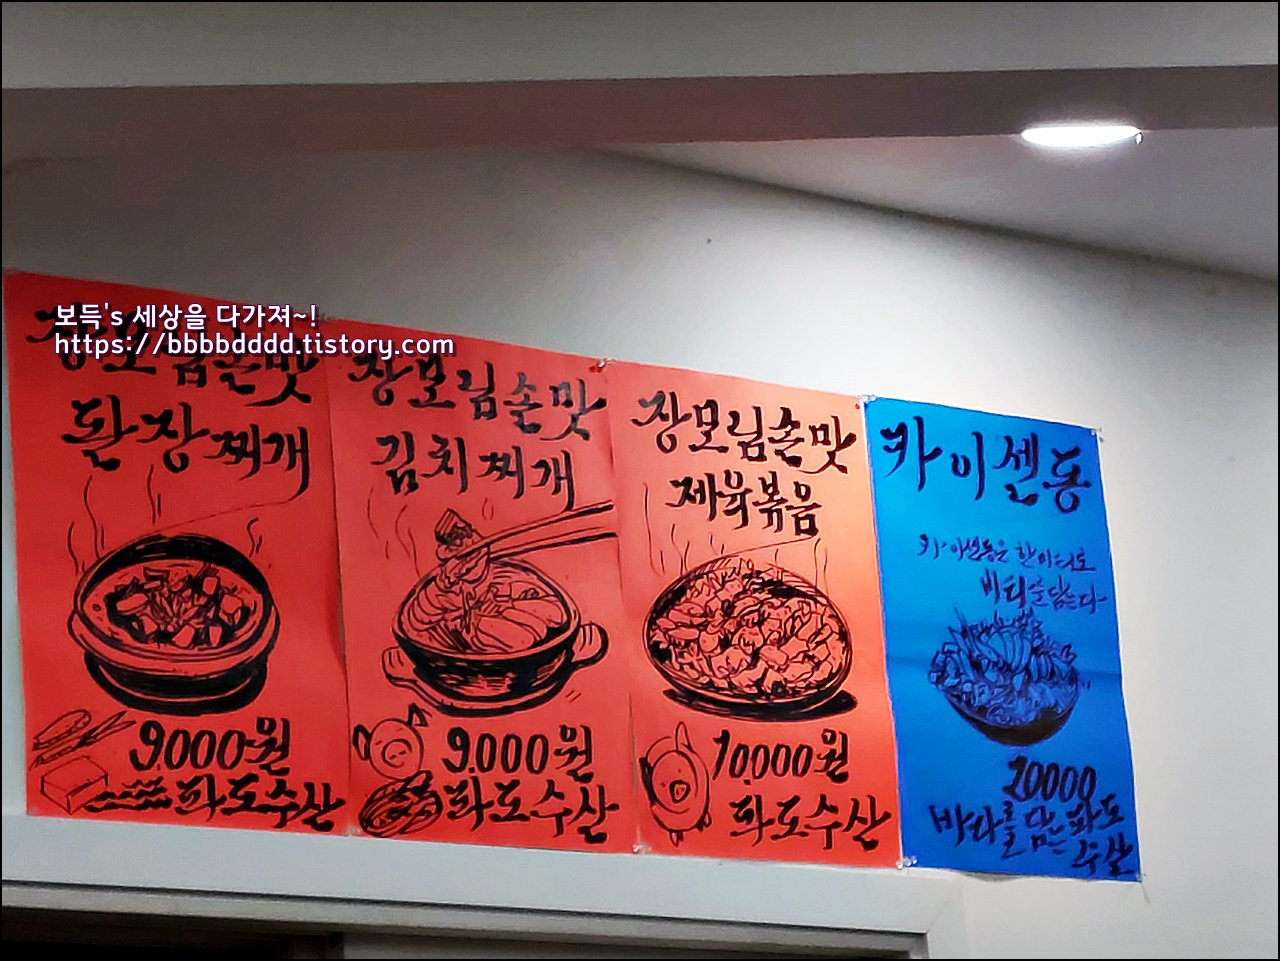 보득's 세상을 다가져~!
https://bbbbdddd.tistory.com
장모님손맛
된장찌개
9.000원
파도수산
장모님손맛
김치찌개
9.000원
파도수산
장모님손맛
제육볶음
10.000원
파도수산
카이센동
카이센동은 한 마디로
바다를 담는다
20000
바다를 담는 파도
수산